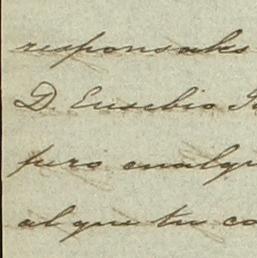 responsables
D. Eusebio
pero cualqu
al que tu co